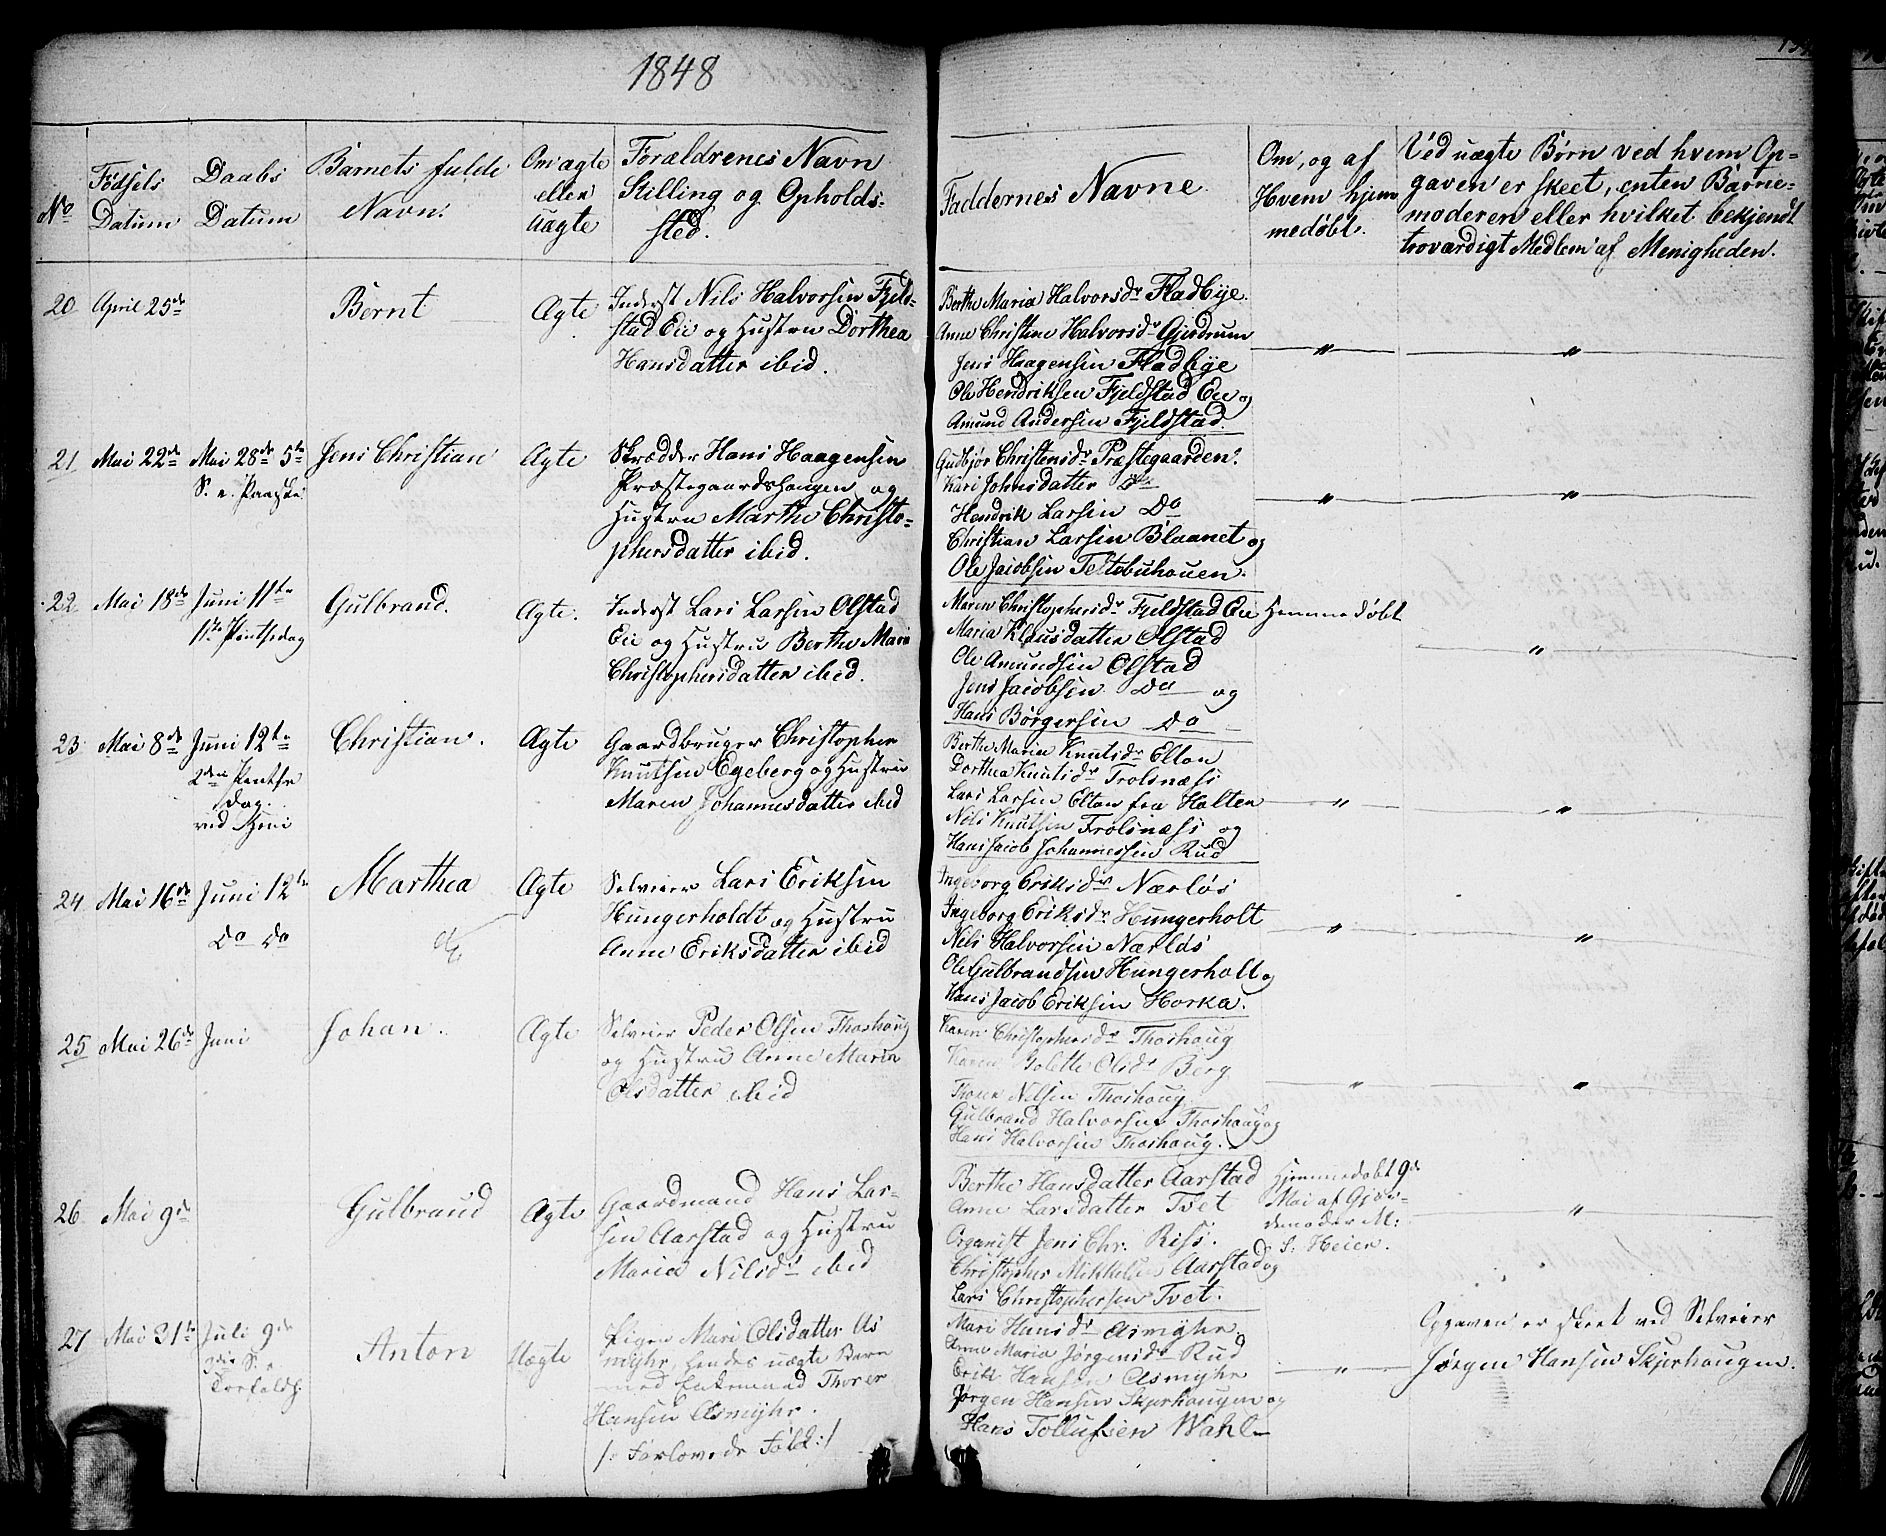 1848
No
Fødsels Datum
Daabs Datum
Barnets fulde Navn.
Om ægte eller uægte
Forældrenes Navn Stilling og Opholds-
sted.
Faddernes Navne.
Om, og af Hvem hjem medøbt.
Ved uægte Børn ved hvem Op-
gaven er skeet, enten Barne-
moderen eller hvilket bekjendt
troværdigt Medlem af Menigheden.
20 April 25de Bernt Ægte
Inderst Nils Halvorsen Fjeld-
stad Eie og Hustru Dorthea
Hansdatter ibid.
Berthe Maria Halvorsdr Fladbye.
Anne Christine Halvorsdr Gjødrum
Jens Haagensen Fladbye
Ole Hendriksen Fjeldstad Eie og
Amund Andersen Fjeldstad.
21 Mai 22de Mai 28de 5te Jens Christian Ægte
S. e. Paaske
Skrædder Hans Haagensen
Præstegaardshaugen og
Hustru Marthe Christo-
phersdatter ibid.
Gudbjør Christensdr Præstegaarden.
Kari Johnsdatter Do
Hendrik Larsen Do
Christian Larsen Blaanet og
Ole Jacobsen Teltebuhouen.
22 Mai 18de Juni 11te Gulbrand. Ægte.
1ste Pintsedag
Inderst Lars Larsen Olstad
Eie og Hustru Berthe Marie
Christophersdatter ibid.
Maren Christophersdr Fjeldstad Eie Hjemmedøbt
Maria Klausdatter Olstad
Ole Amundsen Olstad
Jens Jacobsen Do og
Hans Børgersen Do
23 Mai 8de Juni 12te Christian. Ægte
2den Pintse
dag.
ved Heni
Gaardbruger Christopher
Knutsen Egeberg og Hustru
Maren Johannesdatter ibid
Berthe Maria Knutsdr Elton
Dorthea Knutsdr Trolsnæss
Lars Larsen Elton fra Holter
Nils Knutsen Trolsnæss og
Hans Jacob Johannessen Rud
24 Mai 16de Juni 12te Marthea Ægte
Do Do
Selveier Lars Eriksen
Hungerholdt og Hustru
Anne Eriksdatter ibid
Ingeborg Eriksdr Nærløs
Ingeborg Eriksdr Hungerholt
Nils Halvorsen Nærløs
Ole Gulbrandsen Hungerholt og
Hans Jacob Eriksen Horka.
25 Mai 26de Juni Johan. Ægte
Selveier Peder Olsen Thoshoug
og Hustru Anne Maria
Olsdatter ibid
Karen Christophersdr Thoshoug
Karen Golette Olsdr Berg
Thorer Nilsen Thoshoug
Gulbrand Halvorsen Thoshoug og
Hans Halvorsen Thoshoug.
26 Mai 9de Gulbrand Ægte
Gaardmand Hans Lar-
sen Aarstad og Hustru
Maria Nilsdr ibid
Berthe Hansdatter Aarstad
Anne Larsdatter Tvet
Organist Jens Chr. Riss.
Christopher Mikkelsen Aarstad og
Lars Christophersen Tvet.
Hjemmedøbt 9de
Mai af Gjor-
demoder M:
S: Heier.
27 Mai 31te Juli 9de Anton Uægte
3die S. e
Trefoldh.
Pigen Mari Olsdatter As
myhr, hendes uægte Barn
med Enkemand Thorer
Hansen Asmyhr.
/: Forlovede Folk :/
Mari Hansdr Asmyhr
Anne Maria Jørgensdr Rud
Erik Hansen Asmyhr
Jørgen Hansen Skjerhaugen og
Hans Tollufsen Wahl
Opgaven er skeet ved Selveier
Jørgen Hansen Skjerhaugen.